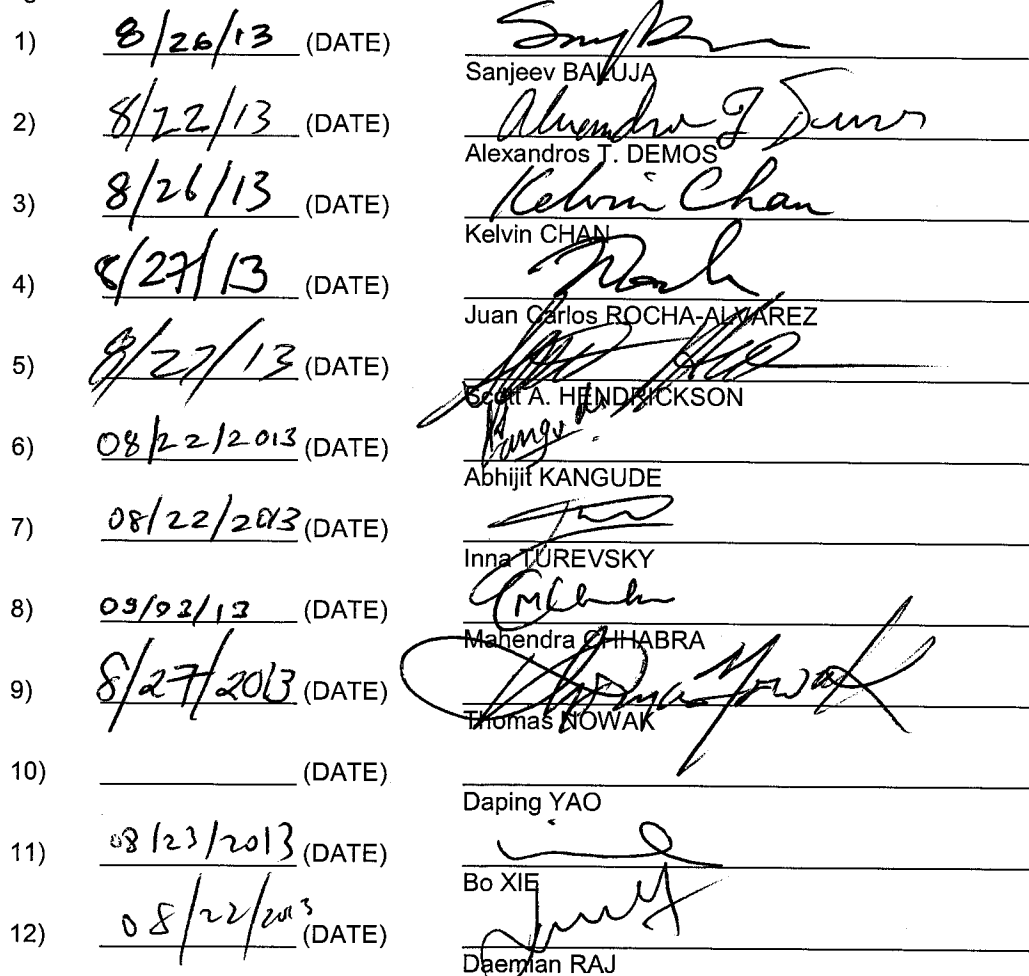 1) 8/26/13 (DATE)
Sanjeev BALUJA
2) 8/22/13 (DATE)
Alexandros T. DEMOS
3) 8/26/13 (DATE) Kelvin Chan
Kelvin CHAN
4) 8/27/13 (DATE)
Juan Carlos ROCHA-ALVAREZ
5) 8/27/13 (DATE)
Scott A. HENDRICKSON
6) 08/22/2013 (DATE)
Abhijit KANGUDE
7) 08/22/2013 (DATE)
Inna TUREVSKY
8) (DATE)
Mahendra CHHABRA
9) 8/27/2013 (DATE) Thomas Nowak
Thomas NOWAK
10) (DATE)
Daping YAO
11) 08/23/2013 (DATE)
Bo XIE
12) 08/22/2013 (DATE)
Daemian RAJ